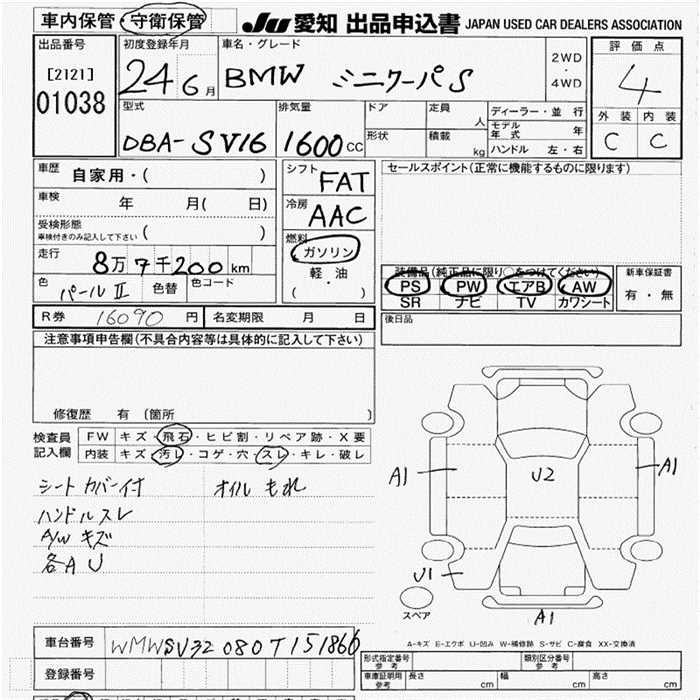 車内保管・守衛保管
JU 愛知 出品申込書 JAPAN USED CAR DEALERS ASSOCIATION
出品番号
[2121]
01038
初度登録年月
24 6月
車名・グレード
BMW ミニクーパS
2WD
・
4WD
評価点
4
外装 内装
C C
型式
DBA-SV16
排気量
1600cc
ドア
形状
定員 人
積載 kg
ディーラー・並行
モデル年式 年
ハンドル 左・右
車歴 自家用・( )
車検 年 月( 日)
受検形態
車検付きのみ記入して下さい ( )
走行 8万7千200km
色 パールⅡ 色替 色コード
シフト FAT
冷房 AAC
燃料
ガソリン
軽・油
( )
セールスポイント(正常に機能するものに限ります)
装備品(純正品に限り○をつけてください)
PS PW エアB AW
SR ナビ TV カワシート
新車保証書
有・無
R券 16090円 名変期限 月 日
後日品
注意事項申告欄(不具合内容等は具体的に記入して下さい)
修復歴 有(箇所 )
検査員
記入欄
FW キズ・飛石・ヒビ割・リペア跡・X要
内装 キズ・汚レ・コゲ・穴・スレ・キレ・破レ
シートカバー付 オイルもれ
ハンドルスレ
A/Wキズ
各AU
A1
U2
A1
U1
A1
スペア
A-キズ E-エクボ U-凹み W-補修跡 S-サビ C-腐食 XX-交換済
車台番号 WMWSV32080T151866
登録番号
形式指定番号
参考
類別区分番号
参考
車庫証明用
参考
長さ cm 幅 cm 高さ cm